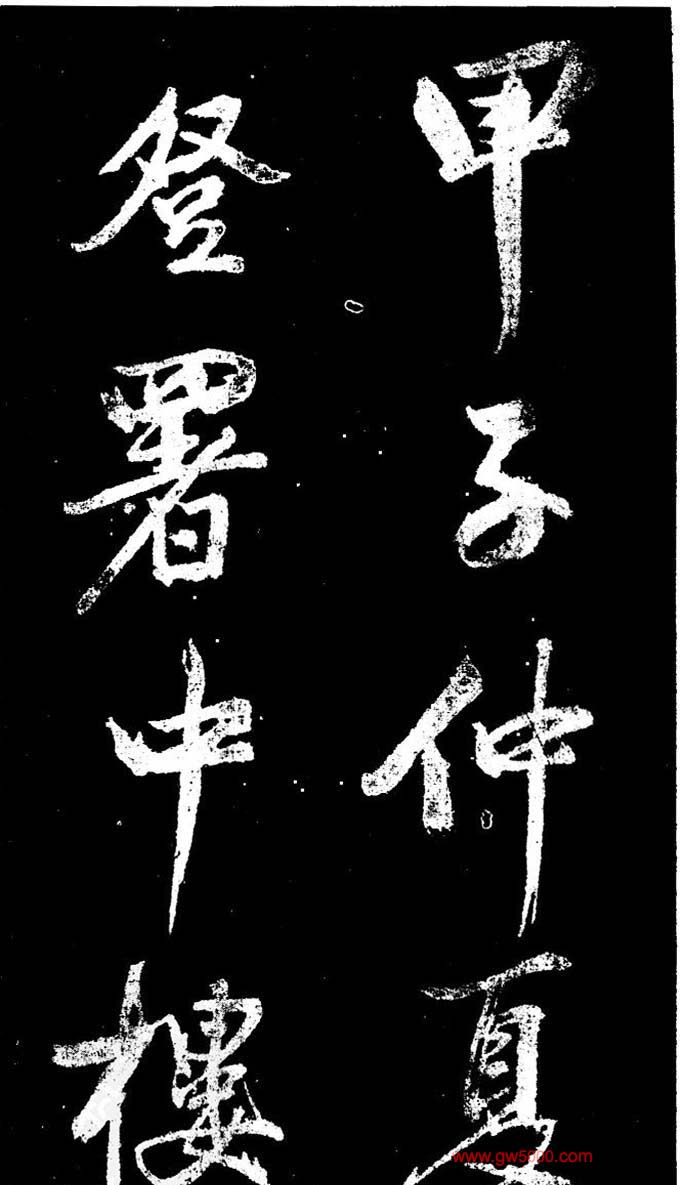 甲子仲夏
登署中樓
www.gw5000.com